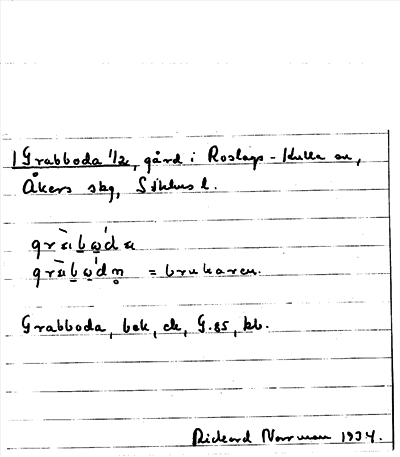 Grabboda 1/2, gård i Roslags-Kulla sn,
Åkers skg, Sthlms l.
= brukaren.
Grabboda, bok, G.85, kb.
Rickard Norrman 1934.